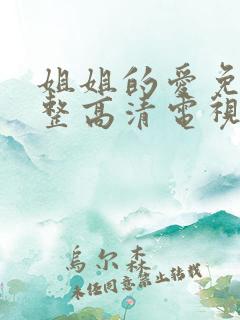 姐姐的愛免
整高清電視
烏尔森
未经同意禁止转载